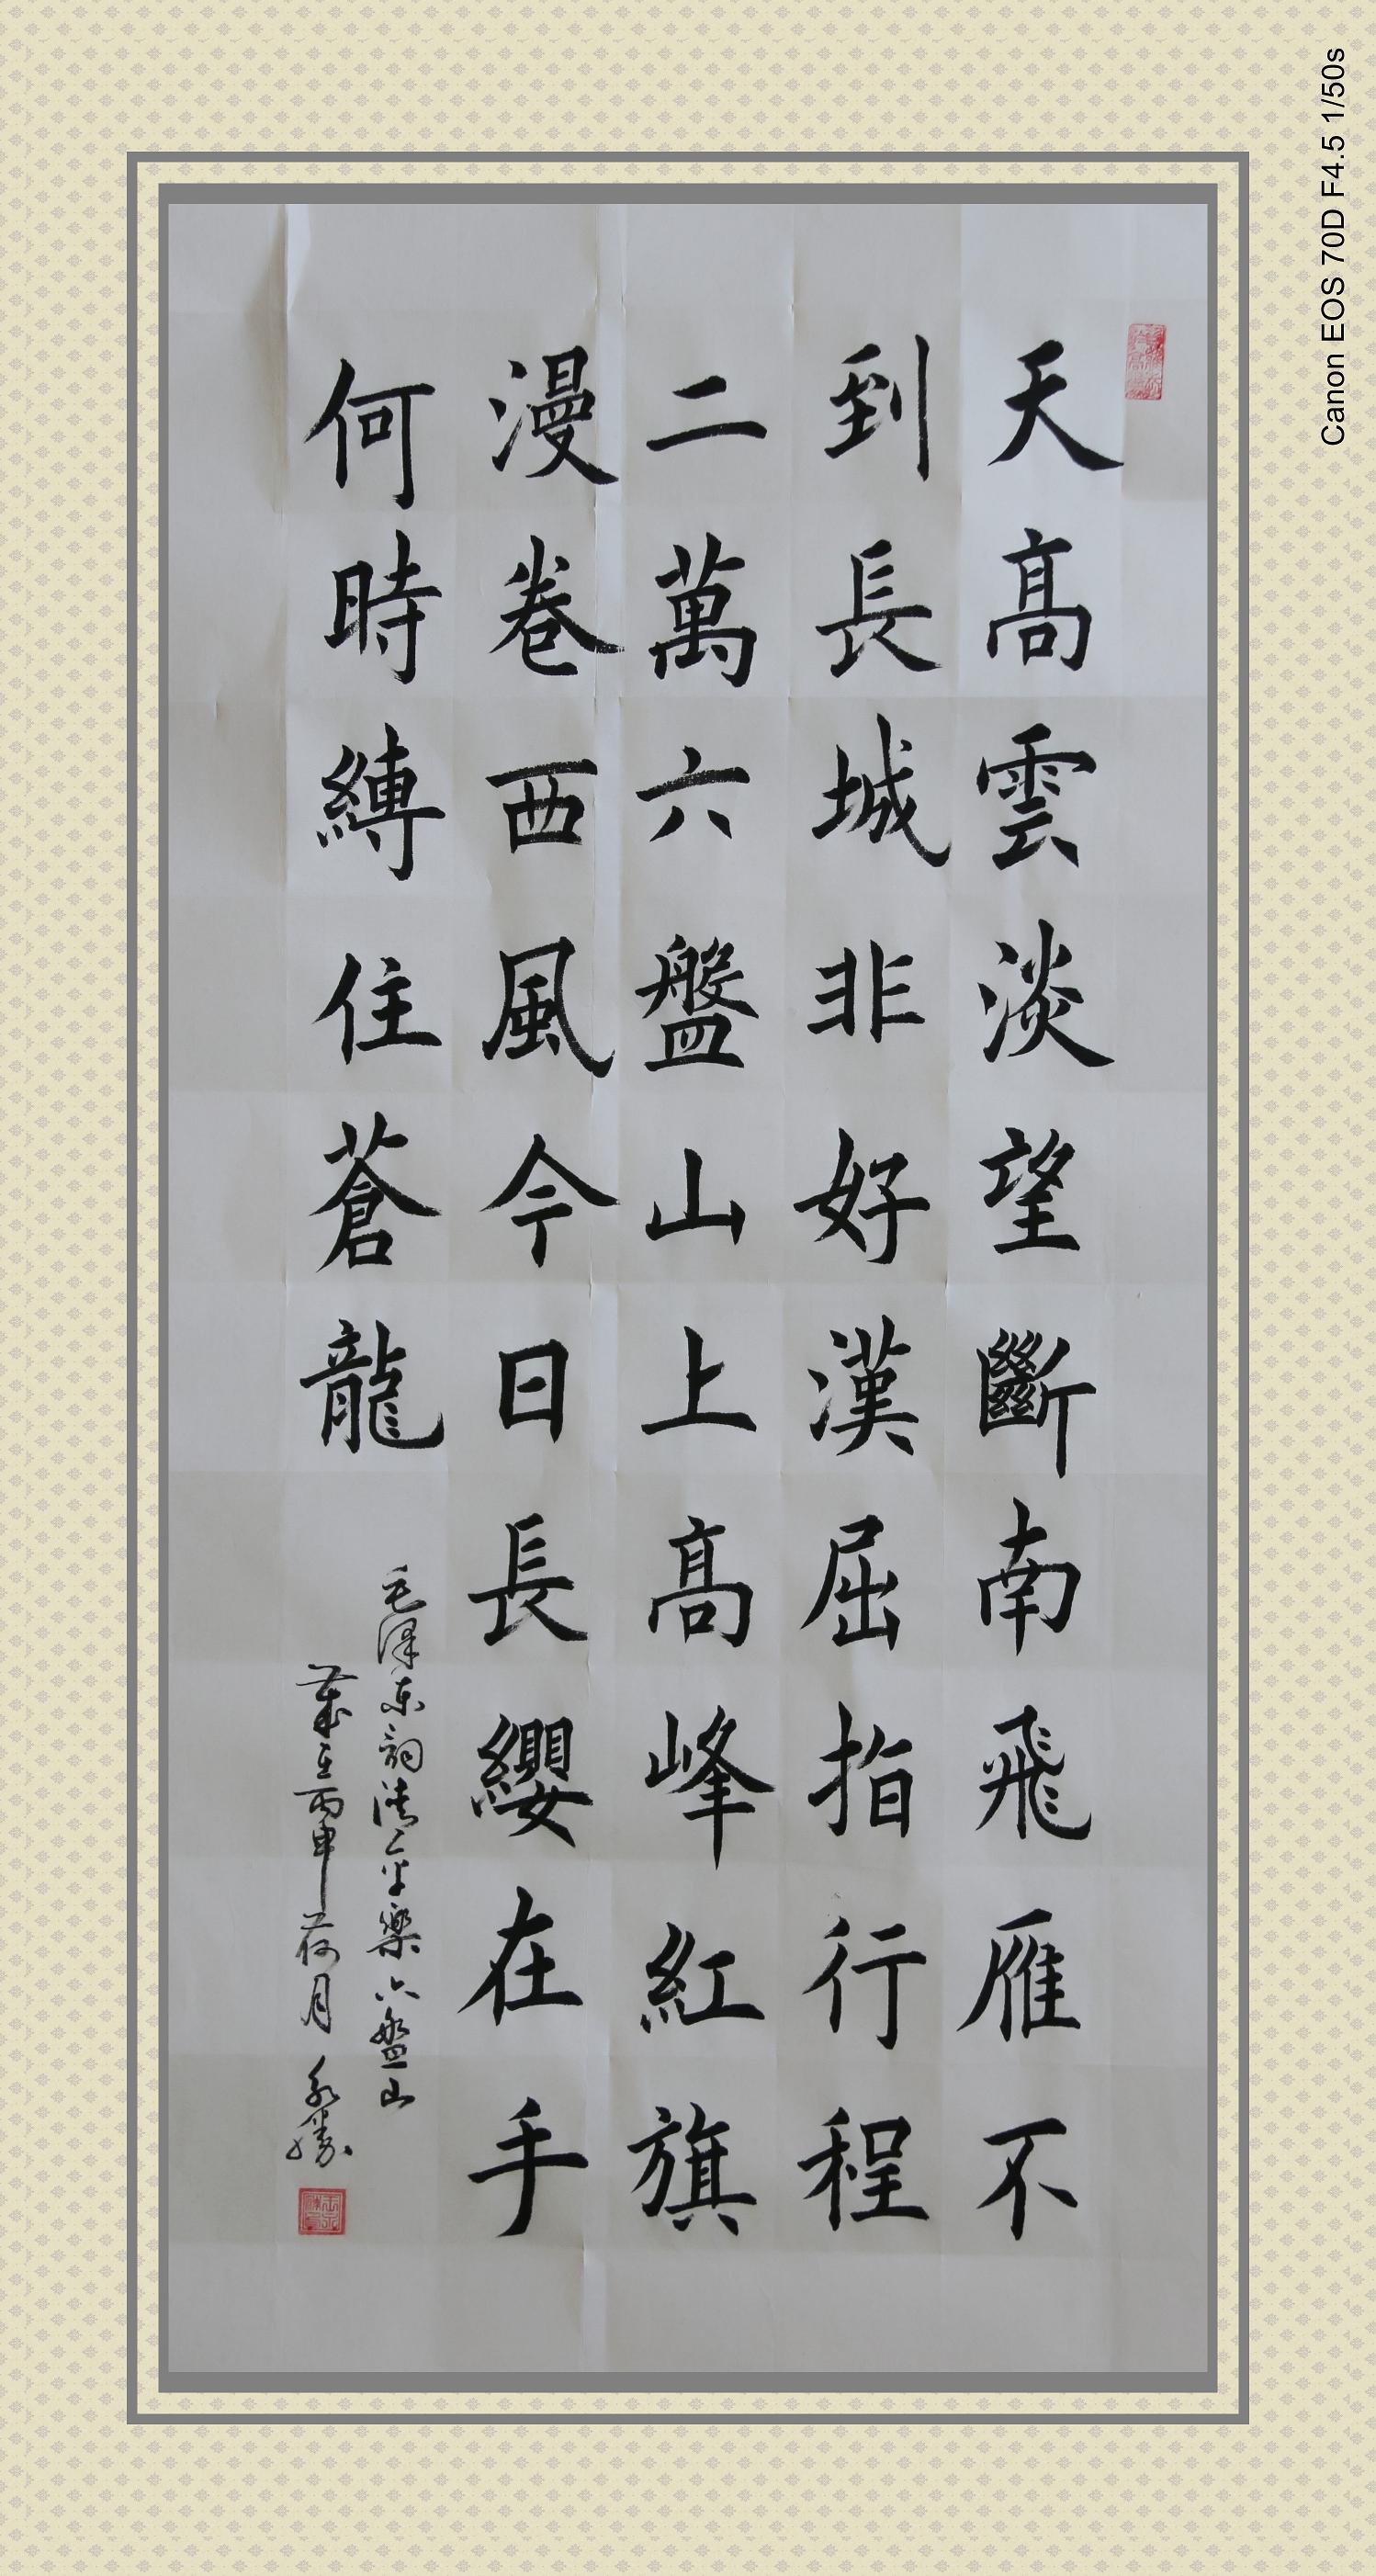 天高雲淡望斷南飛雁不
到長城非好漢屈指行程
二萬六盤山上高峰紅旗
漫卷西風今日長纓在手
何時縛住蒼龍
毛泽东詞清平樂六盤山
歲在丙申荷月永勝
Canon EOS 70D F4.5 1/50s